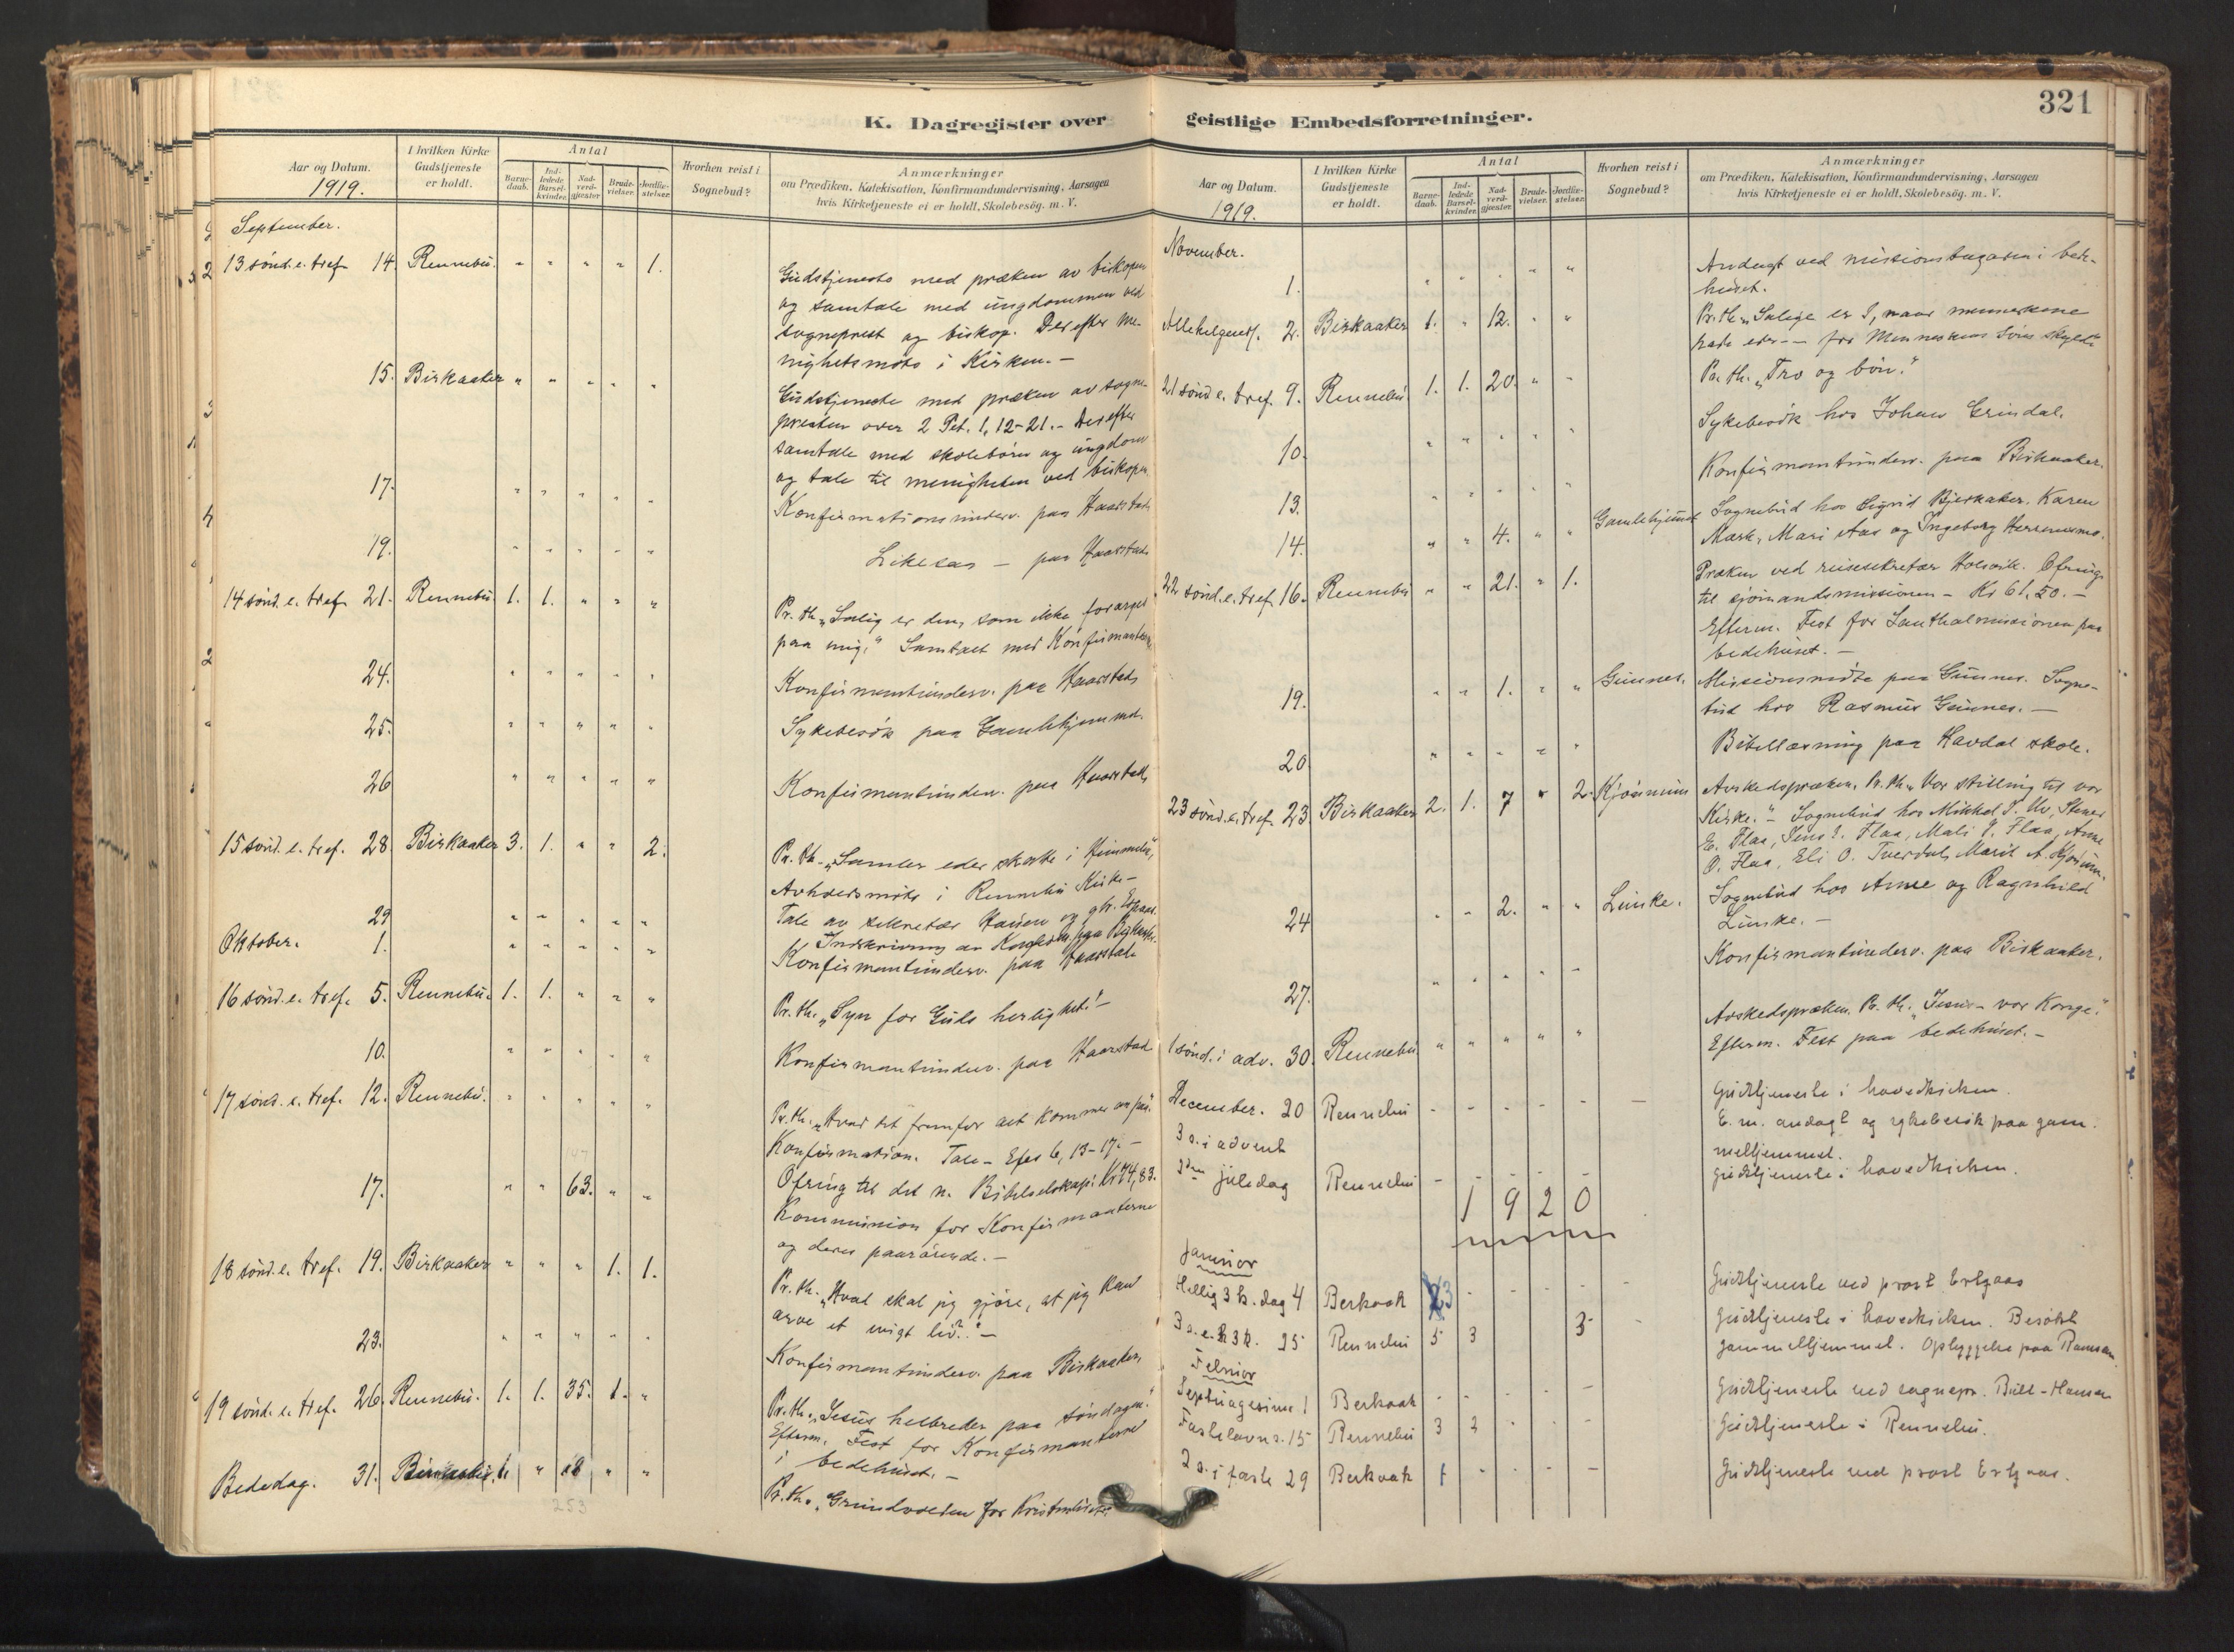 321
K. Dagregister over
Aar og Datum.
1919.
I hvilken Kirke Gudstjeneste er holdt.
Antal
Barnedaab.
Indledede Barselkvinder.
Nadverdgjæster.
Brudevielser.
Jordfæstelser.
Hvorhen reist i Sognebud?
Anmærkninger
om Prædiken, Katekisation, Konfirmandundervisning, Aarsagen
hvis Kirketjeneste ei er holdt, Skolebesög. m. V.
September.
13 sønd. e. tref. 14. Rennebu. " " " " 1.
Gudstjeneste med præken av biskopen
og samtale med ungdommen ved
sogneprest og biskop. Derefter me-
nighetsmøte i Kirken. -
15. Birkaaker " " " " "
Gudstjeneste med præken av sogne-
presten over 2 Pet. 1, 12-21. - Derefter
samtale med skolebørn og ungdom
og tale til menigheten ved biskopen.
17. " " " " "
Konfirmationsunderv. paa Haarstad
19. " " " " "
Likesaa - paa Haarstad
14 sønd. e. tref. 21. Rennebu. 1. 1. " " "
Pr. th. "Salig er den, som ikke forarges
paa mig." Samtalt med Konfirmanterne
24. " " " " "
Konfirmantunderv. paa Haarstad
25. " " " " "
Sykebesøk paa Gamlehjemmet.
26 " " " " "
Konfirmantunderv. paa Haarstad
15 sønd. e. tref. 28 Birkaaker 3. 1. " " 2.
Pr. th. "Samler eder skatte i Himmelen",
Avholdsmøte i Rennebu Kirke -
29 " " " " "
Tale av sekretær Hansen og
Oktober. 1. " " " " "
Indskrivning av Konfirm. paa Birkaaker.
Konfirmantunderv. paa Haarstad
16 sønd. e. tref. 5. Rennebu. 1. 1. " " "
Pr. th. "Syn for Guds herlighet." -
10. " " " " "
Konfirmantunderv. paa Haarstad
17 sønd. e. tref. 12. Rennebu. " " " " "
Pr. th. "Hvad det fremfor alt kommer an paa".
Konfirmation. Tale - Efes 6, 13-17. -
Ofring til det n. Bibelselskap: Kr 74,83.
17. " " 63. " "
Kommunion for Konfirmanterne
og deres paarørende. -
18 sønd. e. tref. 19. Birkaaker " " " 1. 1.
Pr. th. "Hvad skal jeg gjøre, at jeg kan
arve et evigt liv?" -
23. " " " " "
Konfirmantunderv. paa Birkaaker,
19 sønd. e. tref. 26. Rennebu. 1. 1. 35. 1. "
Pr. th. "Jesus helbreder paa søndagen."
Efterm. Fest for Konfirmanterne
i bedehuset. -
Bededag. 31. 1. " 18 " "
Pr. th. "Grundvolden for Kristenlivet."
253
geistlige Embedsforretninger.
Aar og Datum.
1919.
I hvilken Kirke Gudstjeneste er holdt.
Antal
Barnedaab.
Indledede Barselkvinder.
Nadverdgjæster.
Brudevielser.
Jordfæstelser.
Hvorhen reist i Sognebud?
Anmærkninger
om Prædiken, Katekisation, Konfirmandundervisning, Aarsagen
hvis Kirketjeneste ei er holdt, Skolebesög. m. V.
November.
1. " " " " "
Andagt ved missionsbasaren i bede-
huset.
Allehelgensf. 2. Birkaaker 1. " 12. " "
Pr. th. "Salige er I, naar menneskene
hade eder -- for Menneskens Søns skyld."
21 sønd e. tref. 9. Rennebu. 1. 1. 20. " "
Pr. th. "Tro og bøn."
10. " " " " "
Sykebesøk hos Johan Grindal.
13. " " " " "
Konfirmantunderv. paa Birkaaker.
14. " " 4. " " Gamlehjemmet
Sognebud hos Sigrid Bjerkaker, Karen
Mærk, Mari Aas og Ingeborg
22 sønd. e. tref. 16. Rennebu " " 21. " 1.
Præken ved reisesekretær Ofring
til sjømandsmissionen - Kr 61,50. -
Efterm. Fest for Santhalmissionen paa
bedehuset. -
19. " " 1. " " Gunnes.
Missionsmøte paa Gunnes. Sogne-
bud hos Rasmus Gunnes. -
20 " " " " "
Bibellæsning paa Havdal skole.
23 sønd. e. tref. 23 Birkaaker 2. 1. 7 " 2. Kjønnum
Avskedspræken. Pr. th. "Vor stilling til vor
Kirke." - Sognebud hos Mikkel
E. Flaa, Flaa, Mali Flaa, Arne
O. Flaa, Eli O. Marit A. Kjønnum.
24 " " 2. " " Linske.
Sognebud hos Arne og Ragnhild
Linske. -
27. " " " " "
Konfirmantunderv. paa Birkaaker.
1 sønd. i adv. 30. Rennebu " " " " "
Avskedspræken. Pr. th. "Jesus - vor Konge."
Efterm. Fest paa bedehuset. -
December. 20 Rennebu - - - - - -
Gudstjeneste i hovedkirken.
3 s. i advent
E. m. andagt og sykebesøk paa gam-
melhjemmet.
juledag Rennebu - - - - -
Gudstjeneste i hovedkirken.
1920
Januar
Hellig 3 k. dag 4 Berkaak 3 - - - - -
Gudstjeneste ved prost
3 s. e. h 3 k. 25 Rennebu 5 3 3 -
Gudstjeneste i hovedkirken. Besøkt
gammelhjemmet. Opbyggelse paa
Februar
Septuagesima 1 Berkaak - - - - -
Gudstjeneste ved sognepr. Bull-Hansen
Fastelavns. 15 Rennebu 3 2 - - -
Gudstjeneste i Rennebu.
2 s. i faste 29 Berkaak 1 - - - -
Gudstjeneste ved prost